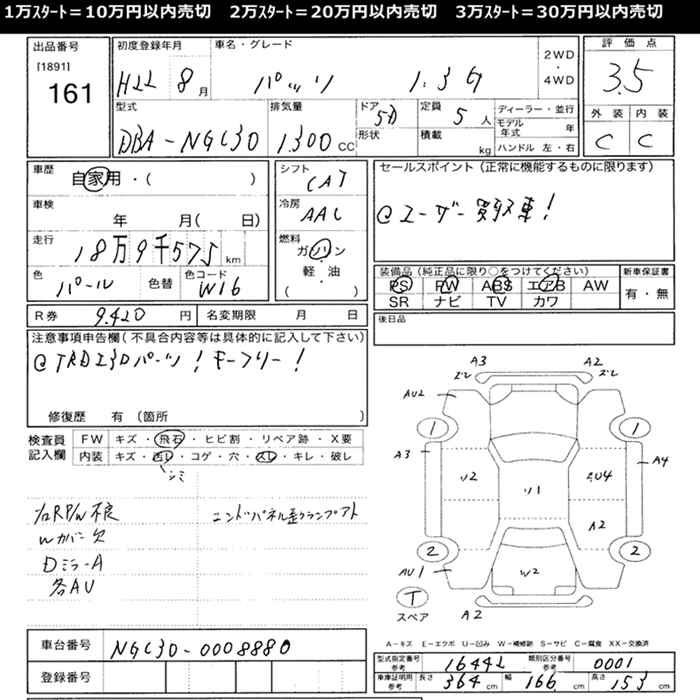 1万スタート＝10万円以内売切　2万スタート＝20万円以内売切　3万スタート＝30万円以内売切
出品番号
[1891]
161
初度登録年月
H22 8月
車名・グレード
パッソ 1.3G
2WD
・
4WD
評価点
3.5
外装 内装
C C
型式
DBA-NGC30
排気量
1.300 CC
ドア
5D
形状
定員
5人
積載
kg
ディーラー・並行
モデル年式 年
ハンドル 左・右
車歴
自家用・( )
車検
年 月( 日)
走行
18万9千575km
色
パール 色替
色コード
W16
シフト
CAT
冷房
AAC
燃料
ガソリン
軽・油
( )
セールスポイント（正常に機能するものに限ります）
@ユーザー買取車！
装備品（純正品に限り○をつけてください）
PS PW ABS エアB AW
SR ナビ TV カワ
新車保証書
有・無
R券 9.420 円
名変期限 月 日
後日品
注意事項申告欄（不具合内容等は具体的に記入して下さい）
修復歴 有（箇所 ）
検査員記入欄
FW キズ・飛石・ヒビ割・リペア跡・X要
内装 キズ・西レ・コゲ・穴・スレ・キレ・破レ
シミ
Wカバー欠
DミラーA
各AU
A3
ズレ
A2
ズレ
AU2
1
1
A3
A4
U2
U1
A2
2
2
AU1
W2
T
スペア
A2
A－キズ E－エクボ U－凹み W－補修跡 S－サビ C－腐食 XX－交換済
車台番号 NGC30-0008880
登録番号
型式指定番号 参考 16442
類別区分番号 参考 0001
車庫証明用 参考 長さ 364 cm 幅 166 cm 高さ 153 cm